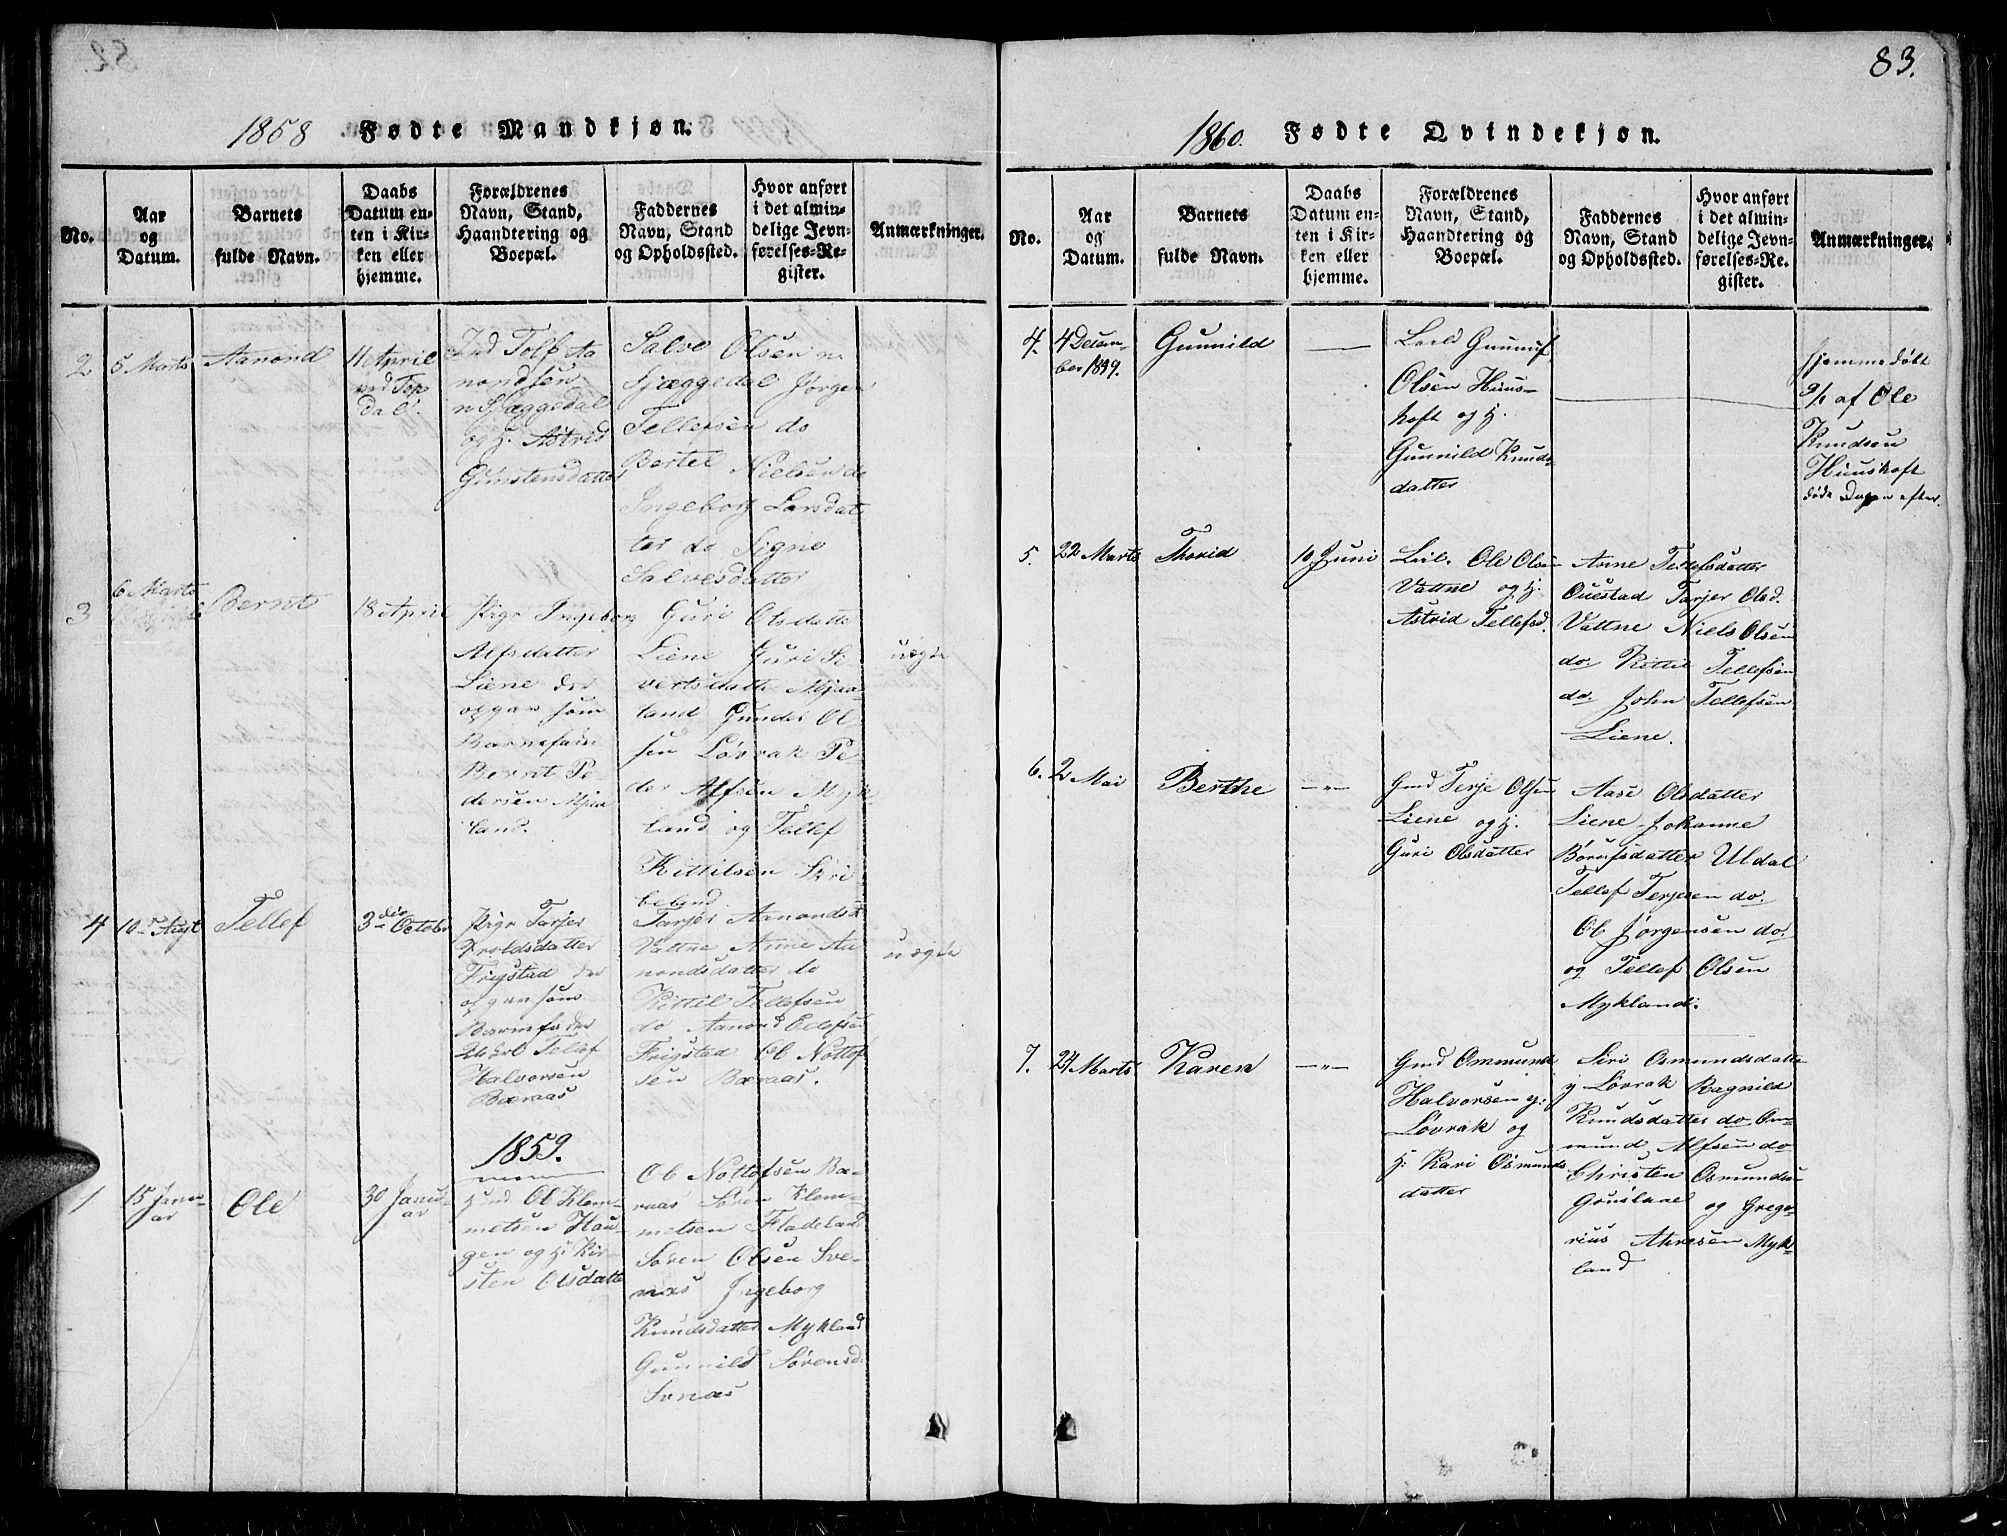 1858 Fødte Mandkjøn.
No.
Aar
og
Datum.
Barnets
fulde Navn.
Daabs
Datum en-
ten i Kir-
ken eller
hjemme.
Forældrenes
Navn, Stand,
Haandtering og
Boepæl.
Faddernes
Navn, Stand
og Opholdssted.
Hvor anført
i det almin-
delige Jevn-
førelses-Re-
gister.
Anmærkninger.
2
5 Marts
Aanond
11 April
dal
Tolf Aa
nondsen
Sjæggedal
og H. Astrid
Gunstensdatter
Salve Olsen
Sjæggedal Jørgen
Tellefsen do
Bertel Nielsen do
Ingeborg Larsdat-
ter do Signe
Salvesdatter
3
6 Marts
Bernt
18 April
Pige Ingeborg
Alfsdatter
Liene der
opgav som
Barnefader
Bernt Pe
dersen Mjaa
land.
Guri Olsdatter
Liene Guri Si
vertsdatter Mjaa
land Gunder Ol
sen Løvrak Pe
der Alfsen Myk
land og Tellef
Kittilsen Skri
beland
uægte
4
10 Augt
Tellef
3die October
Pige Tarjer
Froldsdatter
Frigstad der
opgav som
Barnefader
Tellef
Halvorsen
Bæraas
Tarjer Aanonds
Vattne Anne Aa
nondsdatter do
Kittil Tellefsen
do Aanond Edefsen
Frigstad Ob Nottof
sen Bæraas.
uægte
1859.
1
15 Janu-
ar
Ole
30 Janu-
ar
Ob Klem-
metsen Hau-
gen og H. Kir-
sten Olsdatter
Ob Nottofsen Bæ-
raas Søren Klem-
metsen Fladeland
Søren Olsen Sve-
næs Ingeborg
Knudsdatter Mykland
Gunnild Sørensd.
Svnæs
83.
1860. Fødte Qvindekjøn.
No.
Aar
og
Datum.
Barnets
fulde Navn.
Daabs
Datum en-
ten i Kir-
ken eller
hjemme.
Forældrenes
Navn, Stand,
Haandtering og
Boepæl.
Faddernes
Navn, Stand
og Opholdssted.
Hvor anført
i det almin-
delige Jevn-
førelses-Re-
gister.
Anmærkninger.
4.
4 Decem-
ber 1859.
Gunnild
Gunnuf
Olsen Huus-
hoft og H.
Gunnild Knuds-
datter
hjemmedøbt
9/1 af Ole
Knudsen
Huushoft
døde Dagen efter.
5.
22 Marts
Thorid
10 Juni
Leil. Ole Olsen
Vattne og H.
Astrid Tellefsd.
Anne Tellefsdatter
Ouestad Tarjer Olsd.
Vattne Niels Olsen
do Kittil Tellefsen
do. John Tellefsen
Liene.
6.
2 Mai
Berthe
—"—
Gmd Terje Olsen
Liene og H.
Guri Olsdatter
Aase Olsdatter
Liene Johanne
Børufsdatter Uldal
Tellef Terjesen do.
Ob Jørgensen do.
og Tellef Olsen
Mykland.
7.
24 Marts
Karen
—"—
Gmd Ommund
Halvorsen y:
Løvrak og
H: Kari Osmunds
datter
Siri Osmundsdatter
y Løvrak Ragnild
Knudsdatter do Om-
mund Alfsen do
Christen Osmundsen
og Grego-
rius Ahresen Myk-
land